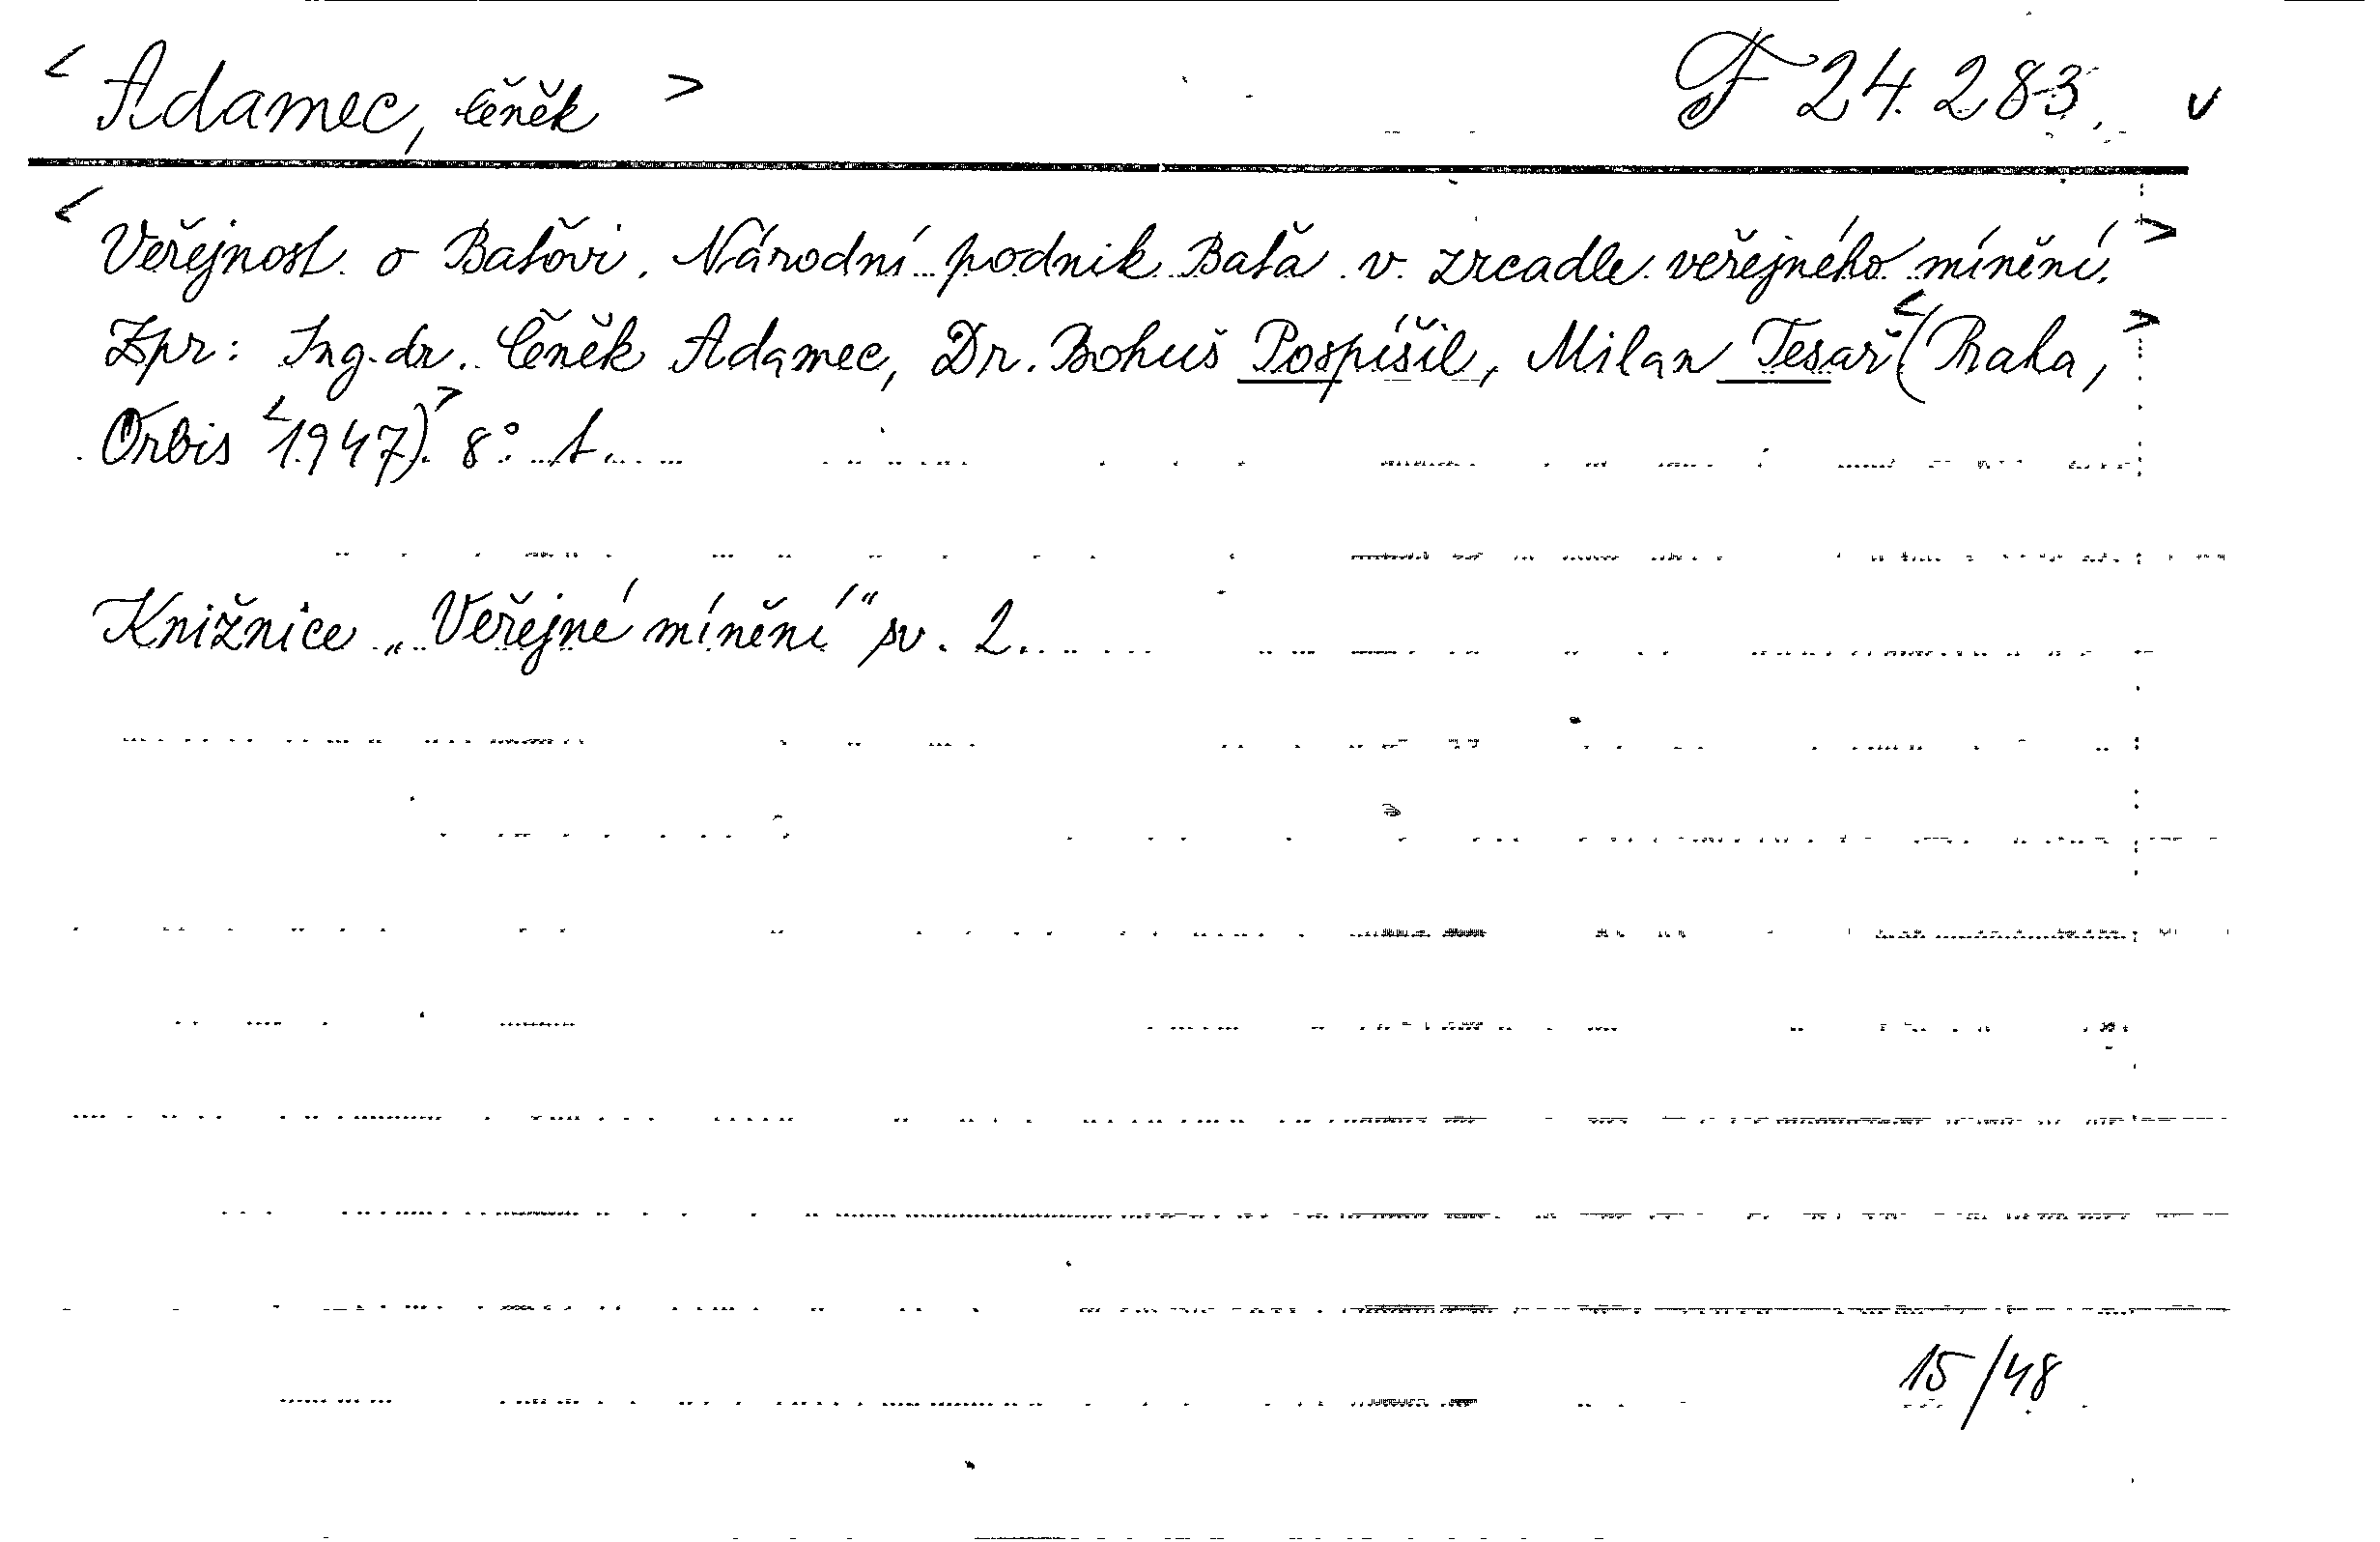 < Adamec, Čeněk > F 24.283. v
< Veřejnost o Baťovi. Národní podnik Baťa v zrcadle veřejného mínění. >
Zpr: Ing. dr. Čeněk Adamec, Dr. Bohuš Pospíšil, Milan Tesař < (Praha, >
Orbis < 1947). > 8°.
Knižnice „Veřejné mínění“ sv. 2.
15/48